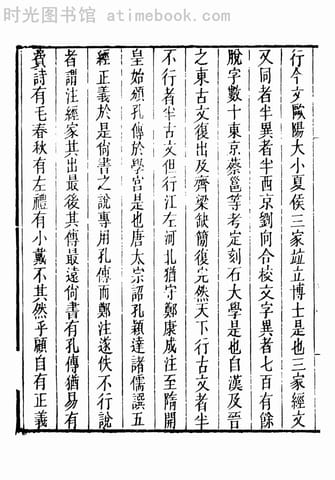 时光图书馆 atimebook.com
行今文歐陽大小夏侯三家竝立博士是也三家經文
又同者半異者半西京劉向合校文字異者七百有餘
脫字數十東京蔡邕等考定刻石大學是也自漢及晉
之東古文復出及齊梁缺簡復完然天下行古文者半
不行者半古文但行江左河北猶守鄭康成注至隋開
皇始頒孔傳於學宮是也唐太宗詔孔穎達諸儒譔五
經正義於是尙書之說專用孔傳而鄭注遂佚不行說
者謂注經家其出最後其傳最遠尙書有孔傳猶易有
費詩有毛春秋有左禮有小戴不其然乎顧自有正義